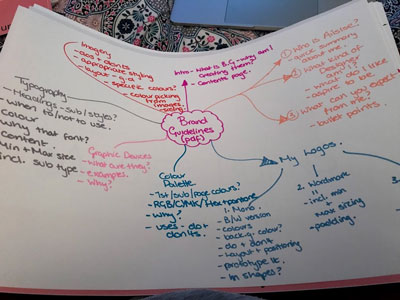 Imagery
- do's + don'ts
- appropriate styling
- layout - g.d +
- specific colours?
- colour picking
from
images.
Intro - What is B.G - why am I
creating them?
- Contents page.
① Who is
- quick summary
about me.
② What kind of
Designer
am I?
- What do I
aspire to be
③ What can you expect
from me?
- bullet points
Brand
Guidelines
(pdf)
Typography
- Headings - sub/styles?
- when to/not to use.
- colour
- why that font?
- content.
- Min + Max size
incl. sub type
Graphic Devices
- what are they?
- examples.
- why?
Colour
Palette
- 1st/sub/page colours?
- RGB/CMYK/Hex+pantone
- why?
- uses - do +
don'ts.
My Logos.
1. Mono
- B/W version
- colours
- backg. colour?
- do + don't
- layout + positioning
- prototype it.
- in shapes?
2. Wordmark
- incl. min
+
Max sizing
- padding.
3.